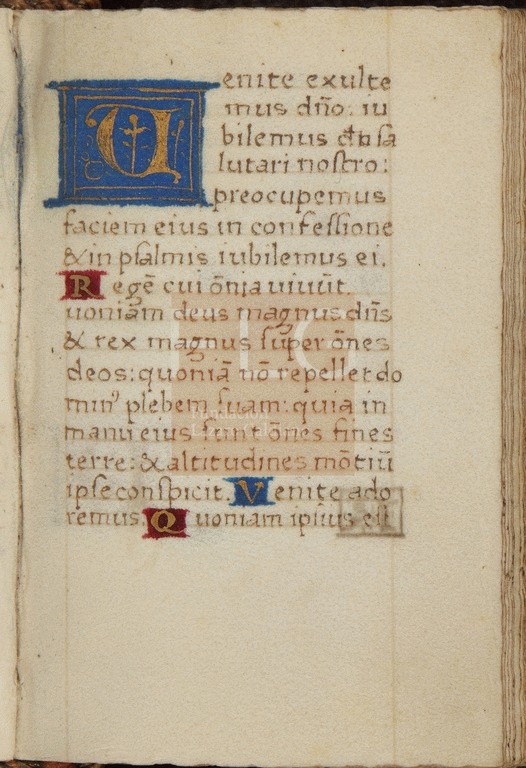 Uenite exulte
mus dn̄o: iu
bilemus deo sa
lutari nostro:
preocupemus
faciem eius in confeſſione
& in pſalmis iubilemus ei.
Regē cui ōnia uiuūt.
uoniam deus magnus dn̄s
& rex magnus ſuper ōnes
deos: quoniā nō repellet do
min⁹ plebem ſuam: quia in
manu eius ſunt ōnes fines
terre: & altitudines mōtiū
ipſe conſpicit. Venite ado
remus. Quoniam ipſius eſt